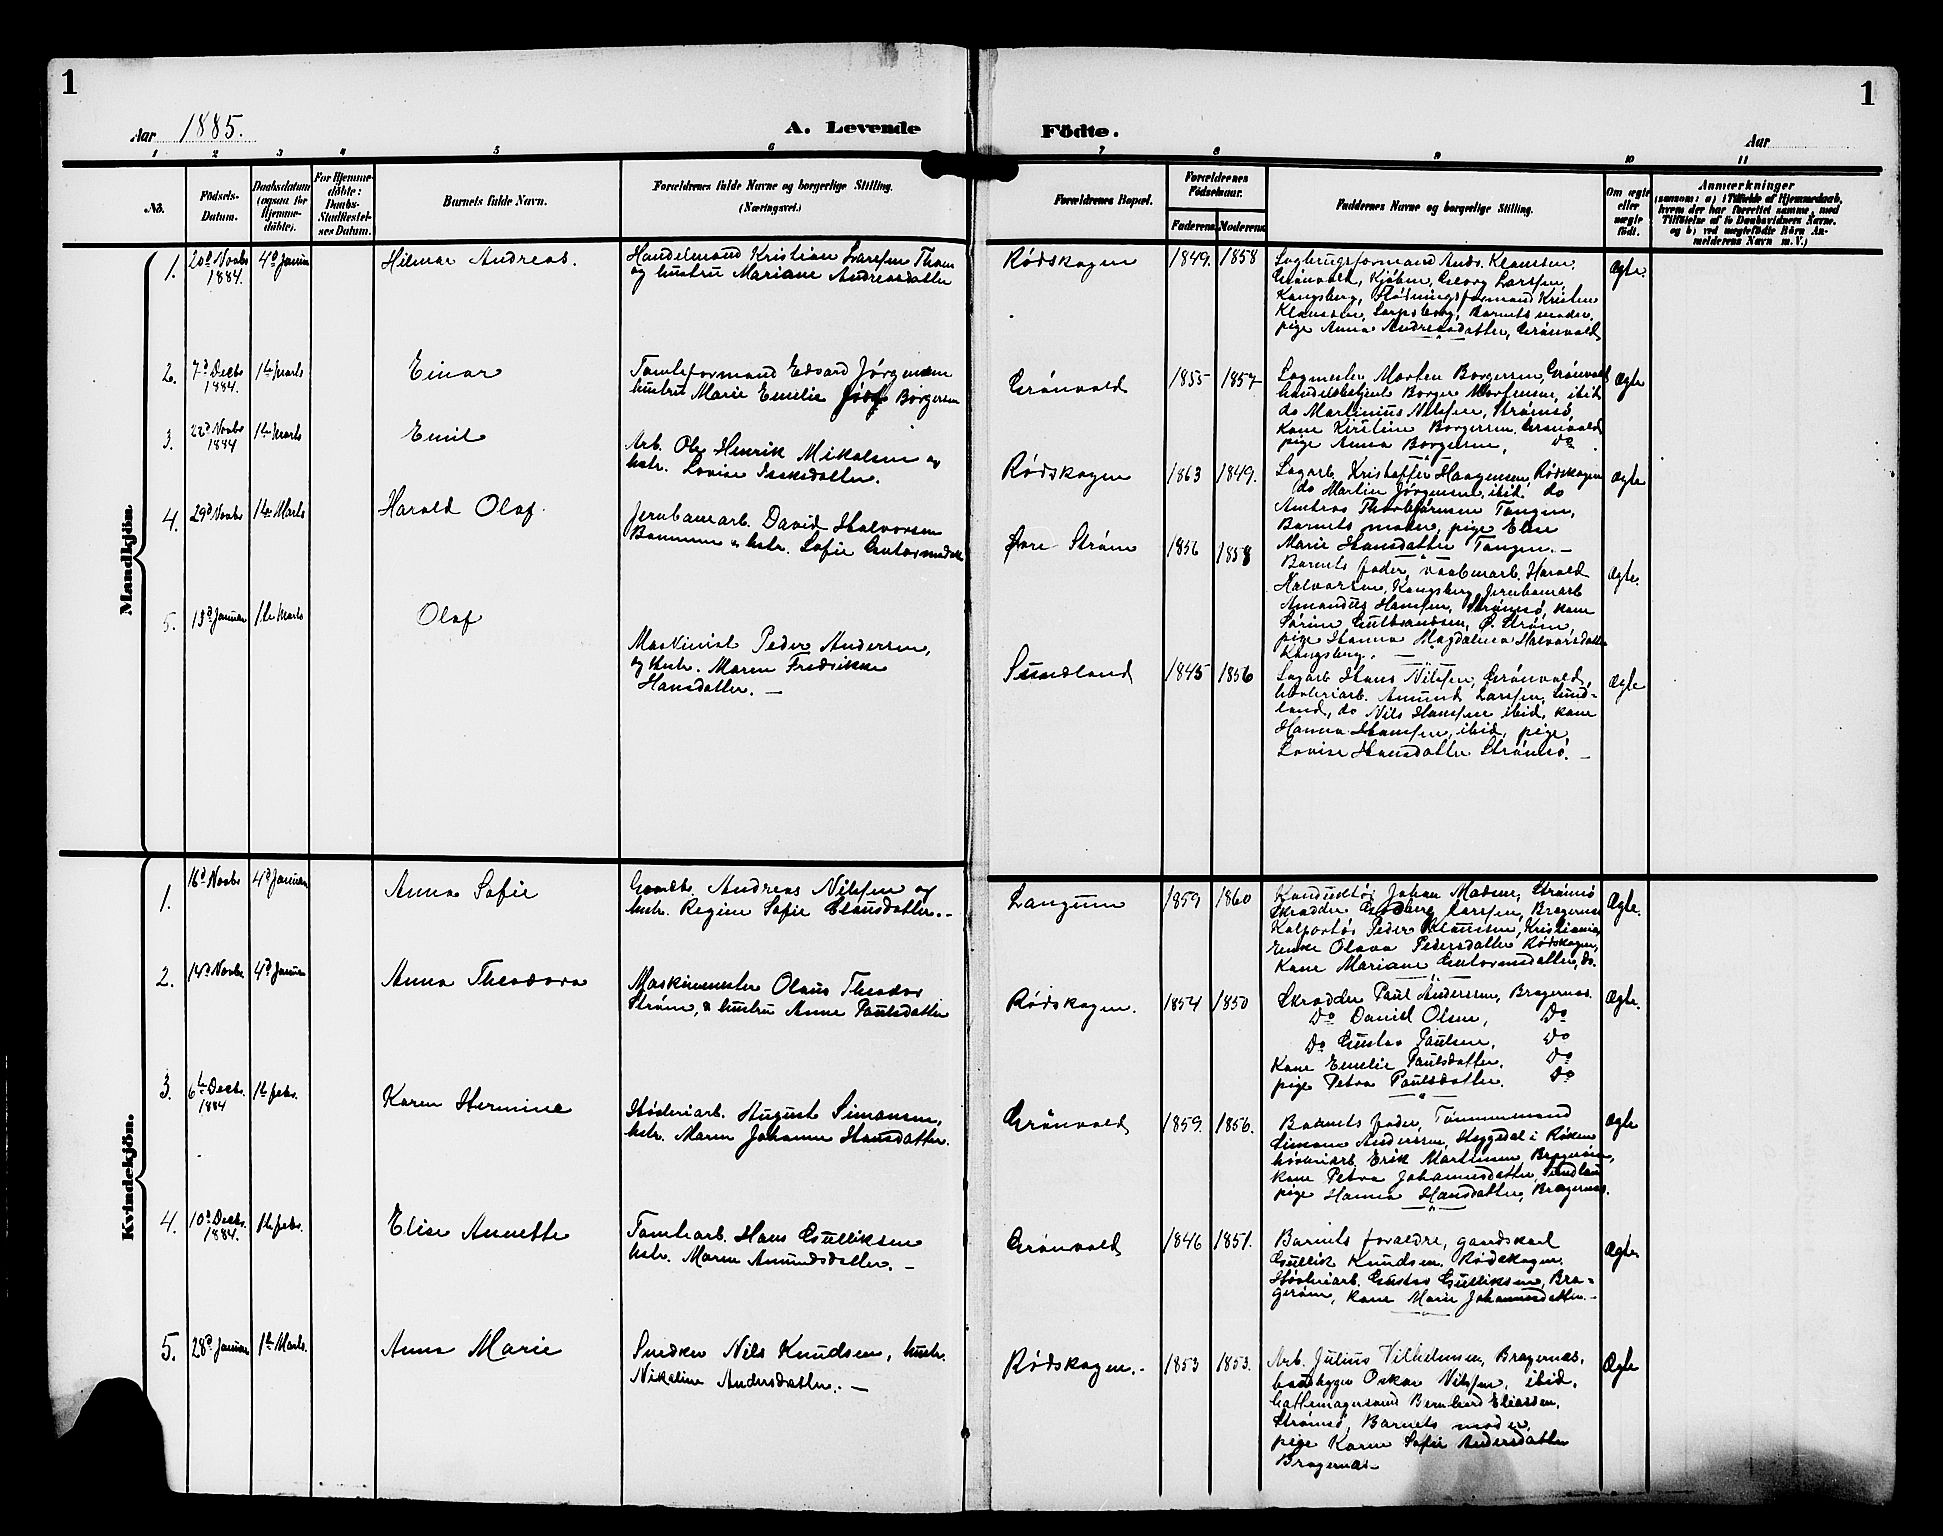 1
1
Aar 1885.
A. Levende
Födte.
Aar
1 2 3 4 5 6
7 8 9 10 11
No.
Födsels-Datum.
Daabsdatum (ogsaa for Hjemme-döbte).
For Hjemme-döbte: Daabs-Stadfæstel-ses Datum.
Barnets fulde Navn.
Forældrenes fulde Navne og borgerlige Stilling.
(Næringsvei.)
Forældrenes Bopæl.
Forældrenes Födselsaar.
Faderens Moderens
Faddernes Navne og borgerlige Stilling.
Om ægte eller uægte födt.
Anmærkninger
(saasom: a) i Tilfælde af Hjemmedaab,
hvem der har forrettet samme, med
Tilföielse af to Daabsvidners Navne,
og b) ved uægtefödte Börn An-
melderens Navn m. V.)
Mandkjön.
1. 20d Novbr 1884. 4d Januar Hilmar Andreas.
Handelsmand Kristian Larssen Thom
og hustru Mariane Andreasdatter
Rødskogen 1849. 1858
Sagbrugsformand Ands. Klausten,
Grønvold, Kjøbm. Georg Larssen,
Kongsberg, Flødningsformand Kristen
Klaussen, Sarpsborg, Barnets moder,
pige Anna Andreasdatter, Grønvold
Ægte.
2. 7d Decbr 1884. 1ste Marts Einar
Tomteformand Edvard Jørgensen
hustru Marie Emelie Borgersen
Grønvold 1855 1857
Sagmester Morten Borgersen, Grønvold
handelsbetjent Borger Mortensen, ibid
do Martinius Nilssen, Strømsø,
kone Kirstine Borgersen, Grønvold
pige Anna Borgersen, do
Ægte
3. 22d Novbr 1884 1ste Marts Emil
Arb. Ole Henrik Mikalsen og
hstr. Lovise Isaksdatter.
Rødskogen 1863 1849.
Sagarb. Kristoffer Haagensen, Rødskogen
do Martin Jørgensen, ibid. do
Andreas Thorbjørnsen Tangen,
Barnets moder, pige Else
Marie Hansdatter Tangen. —
Ægte
4. 29d Novbr 1ste Marts Harald Olaf.
Jernbanearb. David Halvorsen
& hstr. Sofie Guttormsdatt
Øvre Strøm 1856 1858
Barnets fader, vaabenarb. Harald
Halvorsen, Kongsberg, Jernbanearb
Amandus Hansen, Strømsø, kone
Sørine Gulbrandsen, Ø. Strøm,
pige Hanna Magdalena Halvorsdatter
Kongsberg. —
Ægte.
5. 13d Januar 1ste Marts Olaf
Maskinist Peder Andersen,
og hstr. Maren Fredrikke
Hansdatter. —
Sundland 1845 1856
Sagarb. Hans Nilssen, Grønvold,
høvleriarb. Amund Larssen, Sund-
land, do Nils Hanssen ibid, kone
Hanna Hanssen, ibid, pige,
Lovise Hansdatter Strømsø. —
Ægte
Kvindekjön.
1. 16d Novbr 4d Januar Anna Sofie
Gaardbr. Andreas Nilssen og
hstr. Regine Sofie Clausdatter. —
Langum 1859 1860
Konduktør Johan Madsen, Strømsø
Skrædder Larssen, Bragernæs
Kolportør Peder Klausen, Kristiania,
Enke Olava Pedersdatter Rødskogen,
Kone Mariane Guttormsdatter, do.
Ægte.
2. 14d Novbr 4d Januar Anna Theodora
Maskinmester Olaus Theodor
Strøm, & hustru Anne Paulsdatter
Rødskogen. 1854 1850
Skrædder Paul Anderssen, Bragernæs.
Do Daniel Olsen, Do
Do Gustav Paulsen, Do
Kone Emelie Paulsdatter. Do
pige Petra Paulsdatter. Do
Ægte.
3. 6te Decbr. 1884 1ste febr. Karen Hermine
Høvleriarb. August Simonsen,
hstr. Maren Johanne Hansdatter.
Grønvold 1859. 1856.
Barnets fader, Tømmermand
Simon Anderssen, Heggedal i Røken
høvleriarb. Erik Martinsen Bragerøen,
kone Petra Johannesdatter, Sundland
pige Hanna Hansdatter, Bragernæs.
Ægte
4. 10d Decbr. 1884. 1ste febr. Elise Annette
Tomtearb. Hans Gulliksen
hstr. Maren Amundsdatter. —
Grønvold 1846 1851.
Barnets forældre, gaardskarl
Gullik Knudsen, Rødskogen.
Høvleriarb. Gustav Gulliksen, Bra-
gerøen, kone Marie Johannesdatter. —
Ægte
5. 28d Januar 1ste Marts. Anna Marie
Snedker Nils Knudsen, hustr.
Nikoline Andersdatter. —
Rødskogen. 1853 1853.
Arb. Julius Vilhelmsen, Bragernæs,
baadbygger Oskar Nilssen, ibid,
Gattemagersvend Bernhard Eliassen,
Strømsø, Barnets moder,
pige Karen Sofie Andersdatter
Bragernæs —
Ægte